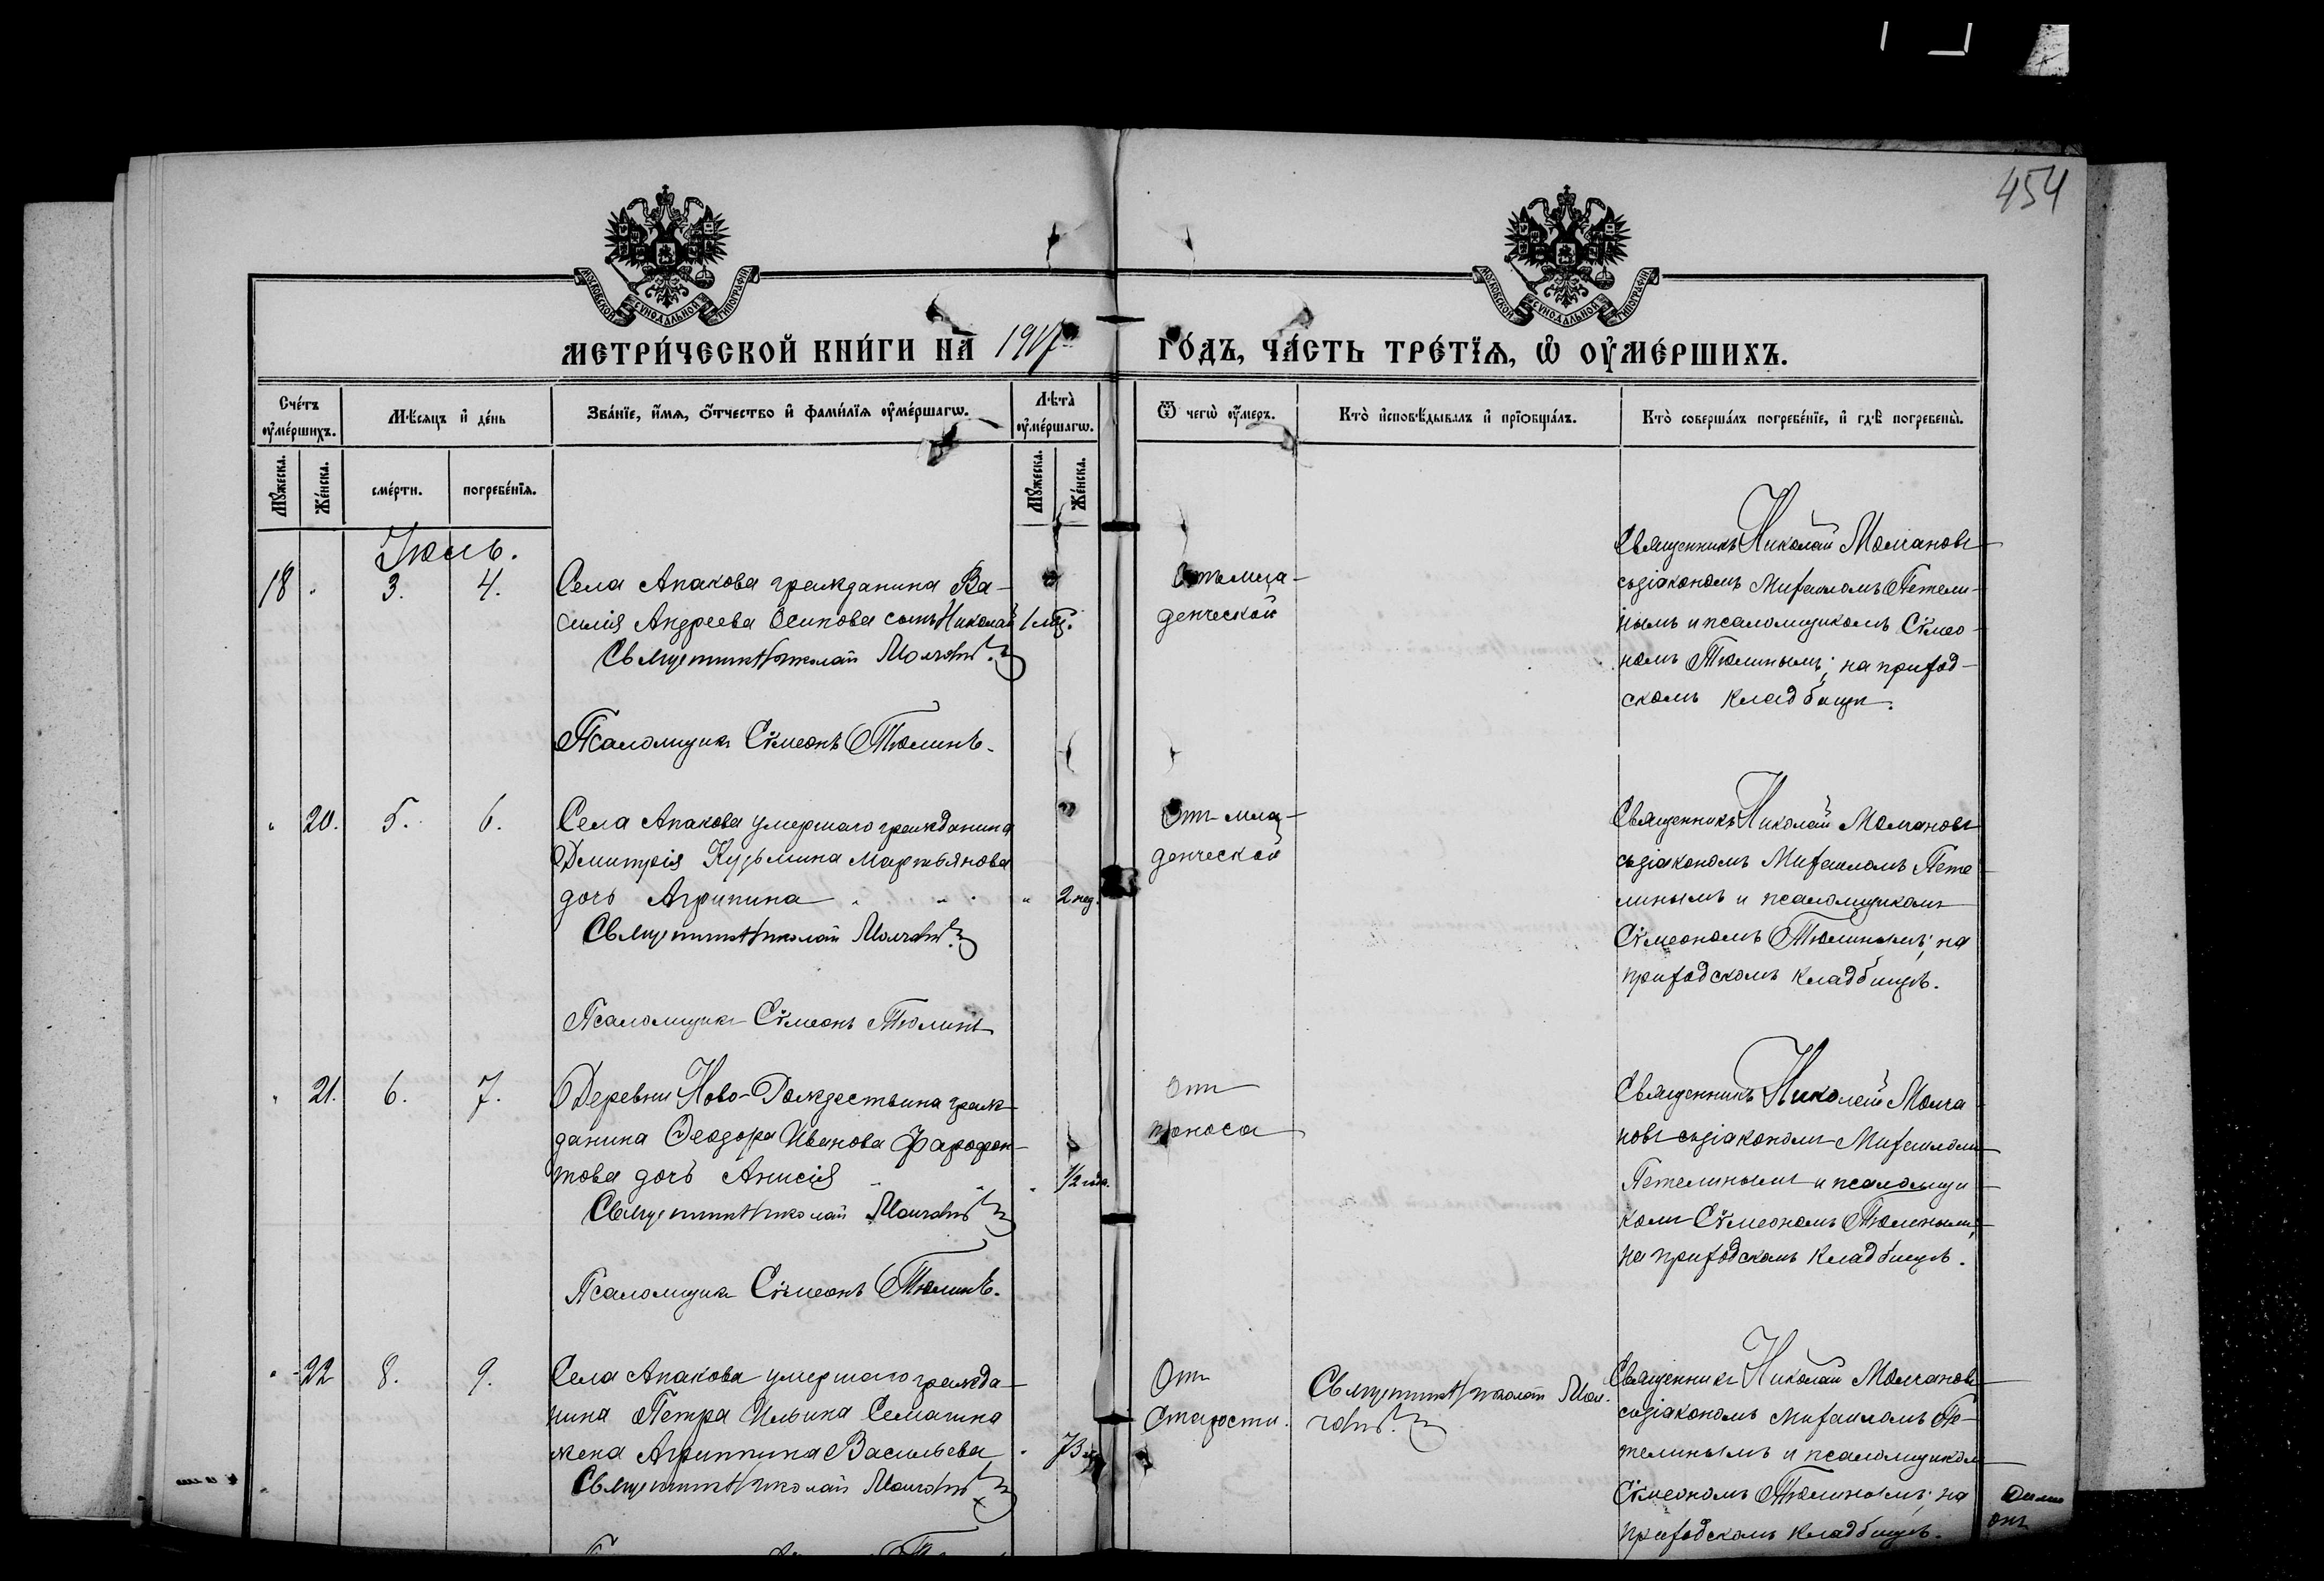 454
МОСКОВСКОЙ СѴНОДАЛЬНОЙ ТИПОГРАФІИ
МОСКОВСКОЙ СѴНОДАЛЬНОЙ ТИПОГРАФІИ
МЕТРИ́ЧЕСКОЙ КНИ́ГИ НА 1917 ГО́ДЪ, ЧА́СТЬ ТРЕ́ТЇѦ, Ѡ ОУ҆МЕ́РШИХЪ.
Сче́тъ оу҆ме́ршихъ.
Мѣ́сяцъ и҆ де́нь
Зва́нїе, и҆́мѧ, ѻ҆́тчество и҆ фами́лїѧ оу҆ме́ршагѡ.
Лѣ́та оу҆ме́ршагѡ.
Ѿ чегѡ̀ оу҆́меръ.
Кто̀ и҆сповѣ́дывалъ и҆ прїѡбща́лъ.
Кто̀ соверша́лъ погребе́нїе, и҆ гдѣ̀ погребены̀.
Мꙋ́жеска.
Же́нска.
сме́рти.
погребе́нїѧ.
Мꙋ́жеска.
Же́нска.
Іюль.
18 " 3. 4.
Села Апакова гражданина Ва-
силія Андреева Осипова сынъ Николай 1 мѣ.
Священникъ Николай Молчановъ
Псаломщикъ Сѵмеонъ Тюлинъ.
Отъ мла-
денческой
Священникъ Николай Молчановъ
съ діакономъ Михаиломъ Петели-
нымъ и псаломщикомъ Сѵмео-
номъ Тюлинымъ; на приход-
скомъ кладбищѣ.
" 20. 5. 6.
Села Апакова умершаго гражданина
Дмитрія Кузьмина Мартьянова
дочь Агрипина " 2 нед.
Священникъ Николай Молчановъ
Псаломщикъ Сѵмеонъ Тюлинъ
Отъ мла-
денческой
Священникъ Николай Молчановъ
съ діакономъ Михаиломъ Пете-
линымъ и псаломщикомъ
Сѵмеономъ Тюлинымъ; на
приходскомъ кладбищѣ.
" 21. 6. 7.
Деревни Ново-Рождествина граж-
данина Ѳеодора Иванова Фарофон-
това дочь Анисія " 1/2 года.
Священникъ Николай Молчановъ
Псаломщикъ Сѵмеонъ Тюлинъ.
Отъ
поноса
Священникъ Николай Молча-
новъ съ діакономъ Михаиломъ
Петелинымъ и псаломщи-
комъ Сѵмеономъ Тюлинымъ;
на приходскомъ кладбищѣ.
" 22 8. 9.
Села Апакова умершаго гражда-
нина Петра Ильина Семагина
жена Агриппина Васильева " 73
Священникъ Николай Молчановъ
Отъ
старости.
Священникъ Николай Мол-
чановъ.
Священникъ Николай Молчановъ
съ діакономъ Михаиломъ Пе-
телинымъ и псаломщикомъ
Сѵмеономъ Тюлинымъ; на
приходскомъ кладбищѣ.